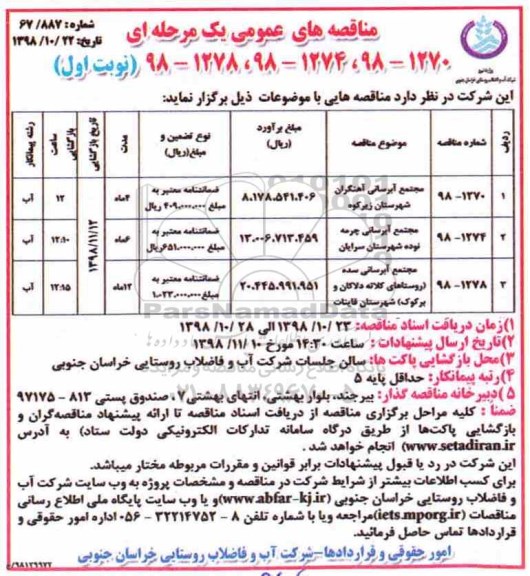 شماره: ۶۷/۸۸۷
تاریخ: ۱۳۹۸/۱۰/۲۲
مناقصه های عمومی یک مرحله ای
۹۸ - ۱۲۷۰، ۹۸ - ۱۲۷۴، ۹۸ - ۱۲۷۸ (نوبت اول)
این شرکت در نظر دارد مناقصه هایی با موضوعات ذیل برگزار نماید:
ردیف شماره مناقصه موضوع مناقصه مبلغ برآورد (ریال) نوع تضمین و مبلغ(ریال) مدت تاریخ بازگشایی ساعت بازگشایی رشته پیمانکار
۱ ۹۸-۱۲۷۰ مجتمع آبرسانی آهنگران شهرستان زیرکوه ۸.۱۷۸.۵۴۱.۴۰۶ ضمانتنامه معتبر به مبلغ ۴۰۹.۰۰۰.۰۰۰ ریال ۴ماه ۱۳۹۸/۱۱/۱۲ ۱۲ آب
۲ ۹۸-۱۲۷۴ مجتمع آبرسانی چرمه نوده شهرستان سرایان ۱۳.۰۰۶.۷۱۳.۴۵۹ ضمانتنامه معتبر به مبلغ ۶۵۱.۰۰۰.۰۰۰ریال ۶ماه ۱۲:۱۰ آب
۳ ۹۸-۱۲۷۸ مجتمع آبرسانی سده (روستاهای کلاته دلاکان و برکوک) شهرستان قاینات ۲۰.۴۴۵.۹۹۱.۹۵۱ ضمانتنامه معتبر به مبلغ ۱.۰۲۳.۰۰۰.۰۰۰ ۱۲ماه ۱۲:۱۵ آب
۱)زمان دریافت اسناد مناقصه: ۲۳ /۱۰/ ۱۳۹۸ الی ۲۸ /۱۰/ ۱۳۹۸
۲)تاریخ ارسال پیشنهادات : ساعت ۱۴:۳۰ مورخ ۱۰ /۱۱/ ۱۳۹۸
۳)محل بازگشایی پاکت ها: سالن جلسات شرکت آب و فاضلاب روستایی خراسان جنوبی
۴)رتبه پیمانکار: حداقل پایه ۵
۵)دبیرخانه مناقصه گذار: بیرجند، بلوار بهشتی، انتهای بهشتی۷ ، صندوق پستی ۸۱۳ - ۹۷۱۷۵
ضمنا : کلیه مراحل برگزاری مناقصه از دریافت اسناد مناقصه تا ارائه پیشنهاد مناقصه‌گران و
بازگشایی پاکت‌ها از طریق درگاه سامانه تدارکات الکترونیکی دولت ستاد) به آدرس
www.setadiran.ir) انجام خواهد شد .
این شرکت در رد یا قبول پیشنهادات برابر قوانین و مقررات مربوطه مختار میباشد.
برای کسب اطلاعات بیشتر از شرایط شرکت در مناقصه و مشخصات پروژه به وب سایت شرکت آب
و فاضلاب روستایی خراسان جنوبی (www.abfar-kj.ir)و یا وب سایت پایگاه ملی اطلاع رسانی
مناقصات (iets.mporg.ir)مراجعه ویا با شماره تلفن ۸ - ۳۲۲۱۴۷۵۲ - ۰۵۶ اداره امور حقوقی و
قراردادها تماس حاصل فرمائید.
امور حقوقی و قراردادها-شرکت آب و فاضلاب روستایی خراسان جنوبی